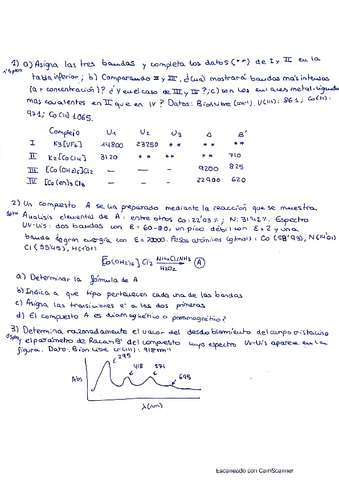 1) a) Asigna las tres bandas y completa los datos (**) de I y II en la
tabla inferior; b) Comparando II y III, ¿cuál mostrará bandas más intensas
(a = concentración)? ¿Y en el caso de III y IV?; c) son los enlaces metal-ligando
mas covalentes en II que en IV? Datos: B ion libre (cm⁻¹). V(III): 861; Co(II):
971; Co(III) 1065.
Complejo U₁ U₂ U₃ Δ B'
I K3[VF6] 14800 23250 ** ** **
II K2[CoCl4] 3120 ** ** ** 710
III [Co(OH2)6]Cl2 — — — 9200 825
IV [Co(en)3]Cl3 — — 22900 620
2) Un compuesto A se ha preparado mediante la reacción que se muestra.
Analisis elemental de A: entre otros Co: 22'03 %; N: 31'42%. Espectro
UV-Vis: dos bandas con ε = 60-80; un pico débil con ε = 2 y una
banda de gran energía con ε = 20000. Pesos atómicos (g/mol): Co (58'93), N(14'01)
Cl (35'45), H(1'01)
[Co(OH2)6]Cl2 NH4Cl/NH3 H2O2 (A)
a) Determinar la fórmula de A
b) Indica a que tipo pertenecen cada una de las bandas
c) Asigna las transiciones e⁻ a las dos primeras
d) El compuesto A es diamagnético o paramagnético?
3) Determina razonadamente el valor del desdoblamiento del campo cristalino
y el parámetro de Racah B' del compuesto cuyo espectro UV-Vis aparece en la
figura. Dato: B ion libre Cr(III): 918 cm⁻¹
295
418
571
695
Abs
λ(nm)
Escaneado con CamScanner